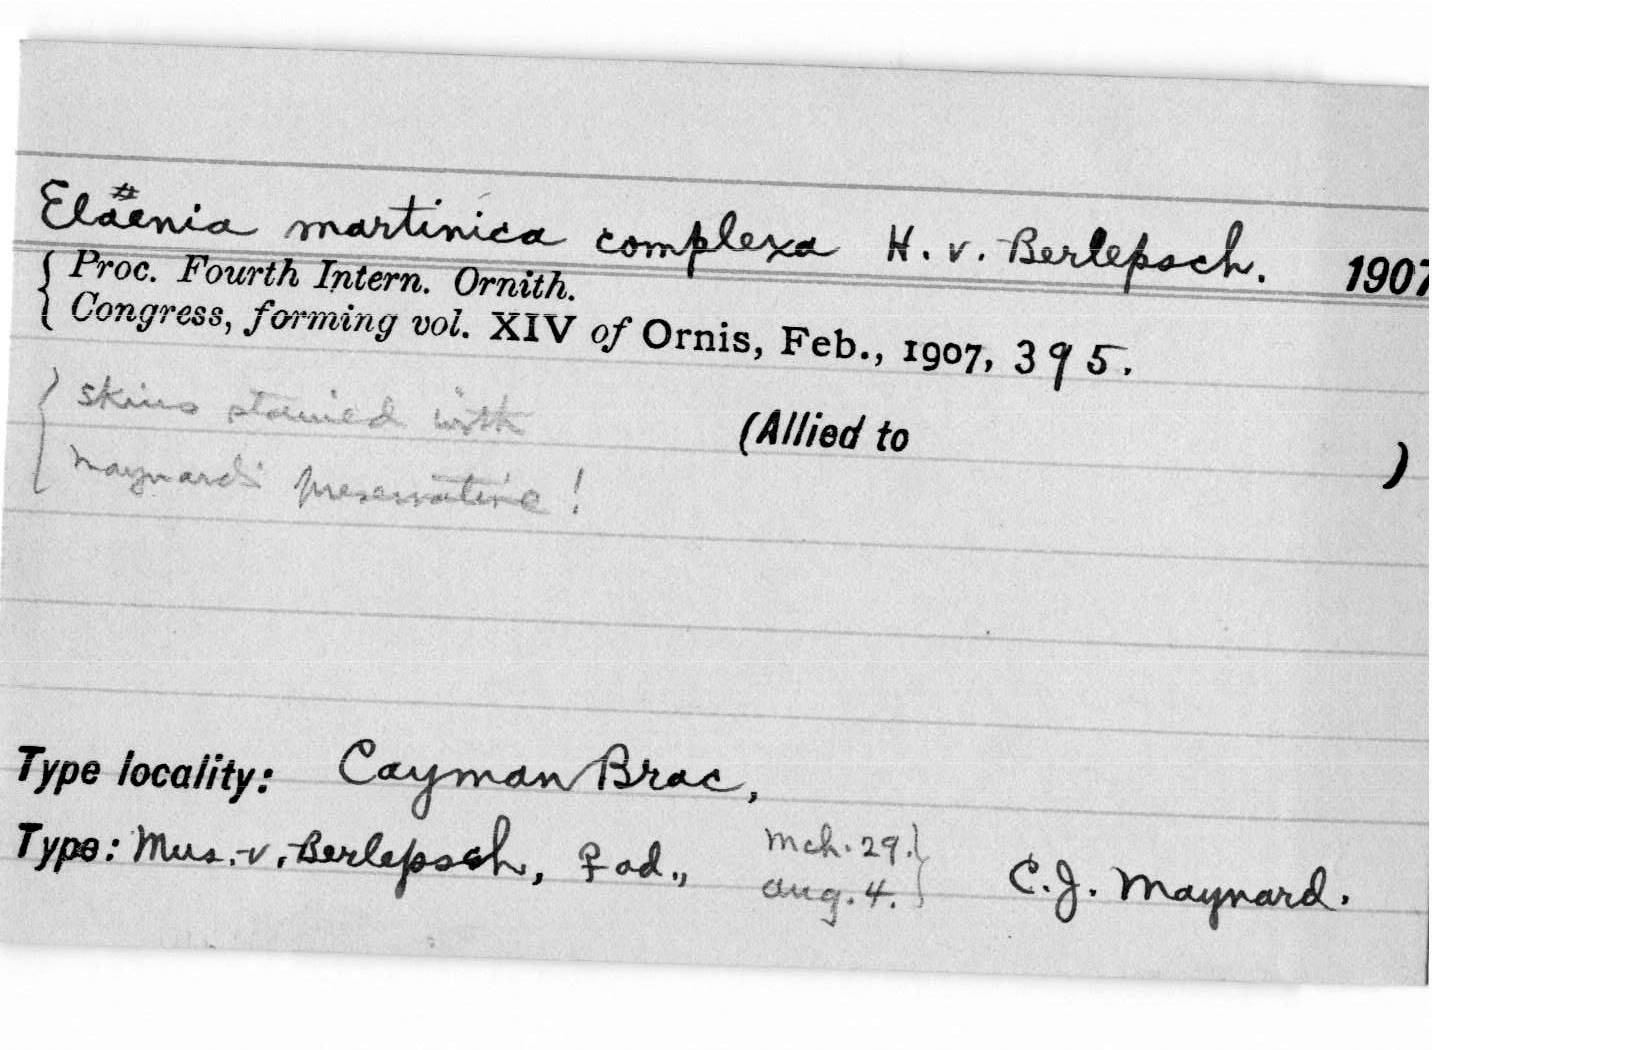 Elaenia martinica complexa H. v. Berlepsch. 1907
Proc. Fourth Intern. Ornith.
Congress, forming vol. XIV of Ornis, Feb., 1907, 395.
skins stained with
(Allied to )
Maynard's preservative!
Type locality: Cayman Brac,
Type: Mus. v. Berlepsch, ♀ ad., Mch. 29. C. J. Maynard.
Aug. 4.